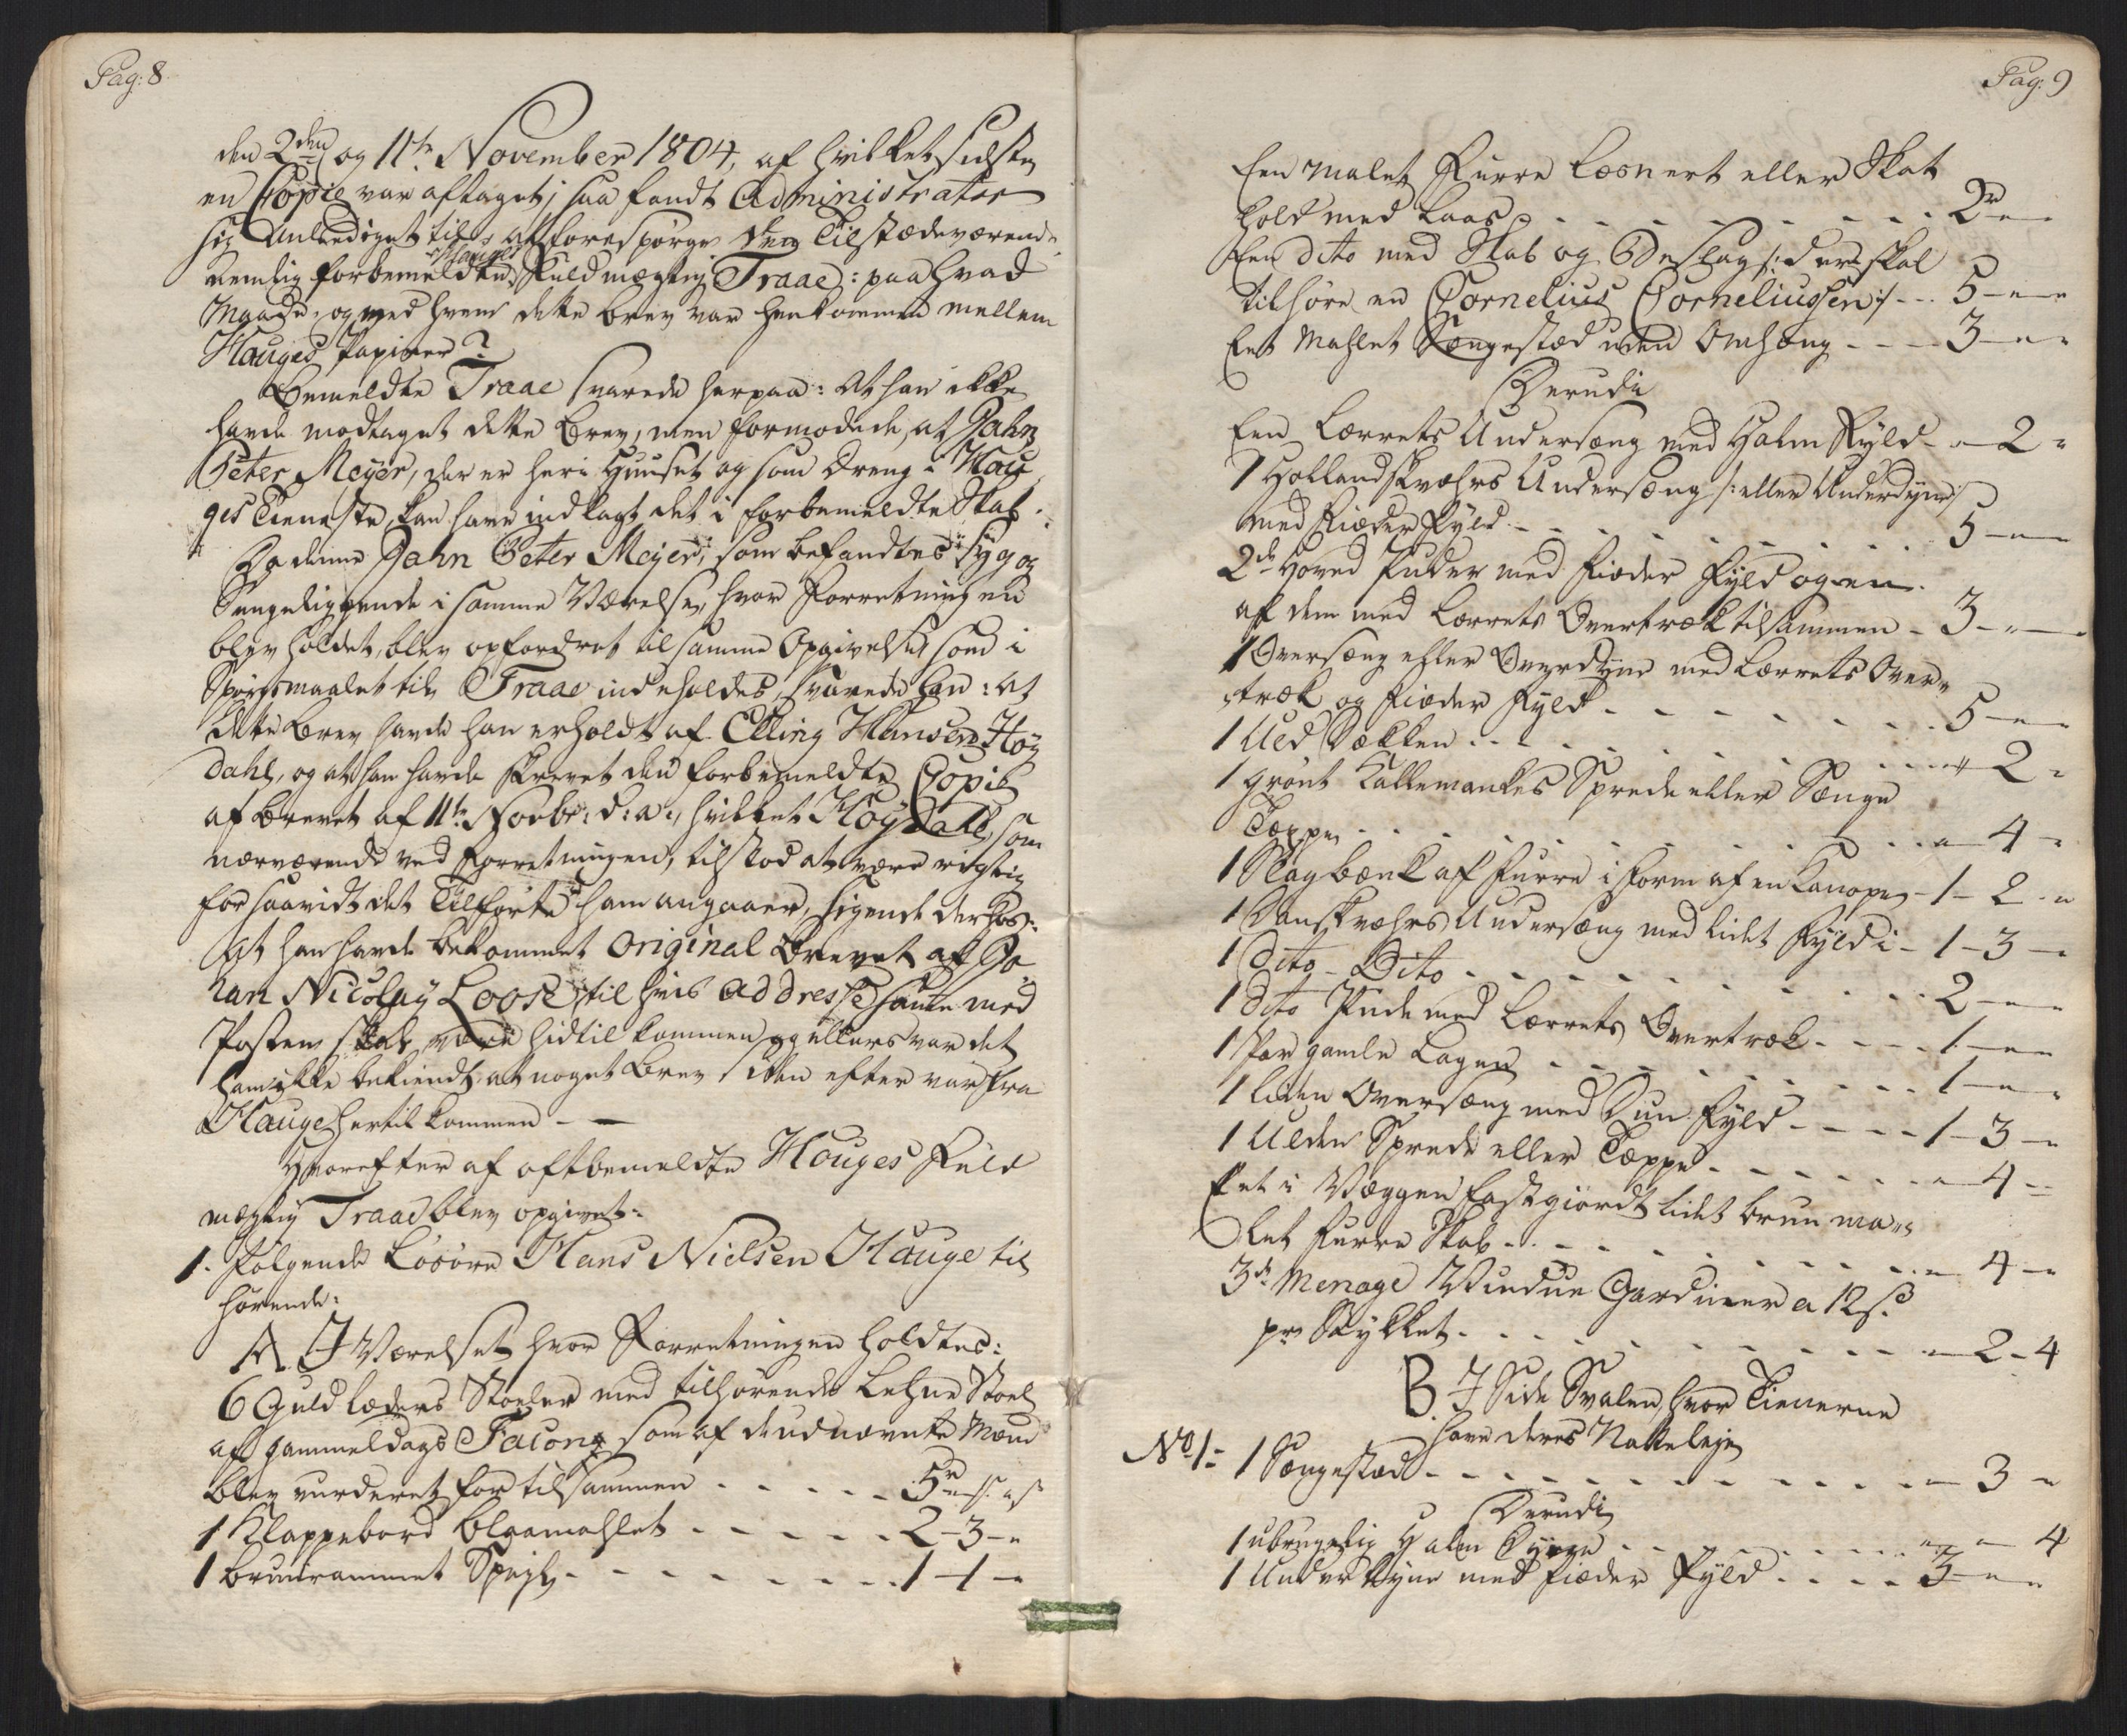 Pag: 8
den 2den og 11te November 1804, af hvilket sidste
en Copie var aftaget; saa fandt Administrator
sig Anlediget til at forespørge den Tilstædeværende
Hauges
nemlig forbemeldte Fuldmægtig Traae: paa hvad
Maade, og med hvem dette brev var henkommen mellem
Hauges Papirer?
Bemeldte Traae svarede herpaa: At han ikke
havde modtaget dette Brev, men formodede, at Jahn
Peter Meyer, der er heri Huuset og som Dreng i Hau
ges Tieneste, kan have indlagt det i forbemeldte Skab.
Da denne Jahn Peter Meyer, som befandtes syg og
Sengeliggende i samme Værelse, hvor Forretningen
blev holdet, blev opfordret til samme Opgivelse, som i
Spørsmaalet til Traae indeholdes, svarede han: At
dette Brev havde han erholdt af Elling Hansen Høy
dahl, og at han havde skrevet den forbemeldte Copie
af brevet af 11te Novbr: d: A:, hvilket Høydahl, som
nærværende ved Forretningen, tilstod at være rigtig
forsaavidt det Tilførte ham angaaer, sigende derhos:
At han havde bekommet Original Brevet af Jo
han Nicolay Loose, til hvis Addresse samme med
Posten skal være hidtil kommen og ellers var det
ham ikke bekiendt, at noget Brev siden efter var fra
Hauge hertil kommen —
Hvorefter af oftbemeldte Houges Fuld
mægtig Traae blev opgivet:
1. følgende Løsøre Hans Nielsen Hauge til
hørende:
A. I Værelset hvor Forretningen holdtes:
6 Guldlæders Stoeler med tilhørende Lehne Stoel
af gammeldags Facong som af de udnævnte Mænd
blev vurderet for tilsammen - - - - - 5r „ s „ s
1 Klappebord blaamahlet - - - - - 2 - 3 - „
1 bruunrammet Speyl - - - - - - - 1 - 1 - „
Pag: 9
Een malet Furre Cosnert eller Skat
hold med Laas - - - - - - - - 2r - „
Een dito med Skab og Beslag /: der skal
tilhøre en Cornelius Corneliussen :/ - - 5 - „ - „
Eet Mahlet Sængested uden Omhæng - - - 3 - „ - „
Derudi
Een Lærrets Undersæng med Halm Fyld - „ - 2 -
1 Hollandskvahrs Undersæng /: eller Underdyne :/
med Fiæder Fyld - - - - - - - - 5 - „ - „
2de Hoved Puder med Fiæder Fyld og een
af dem med Lærrets Overtræk tilsammen - 3 - „ -
1 Oversæng eller Overdyne med Lærrets Over-
træk og Fiæder Fyld - - - - - - - 5 - „ -
1 Uld Dækken - - - - - - - - „ 2 -
1 grønt Kallemankes Sprede eller Sænge
Tæppe - - - - - - - - - „ - 4 -
1 Slagbænk af Furre i Form af en Kanope - 1 - 2 - „
1 Danskvahrs Undersæng med lidet Fyld i - 1 - 3 - „
1 Dito - Dito - - - - - - - - - 2 - „ - „
1 dito Pude med Lærrets Overtræk - - - - 1 - „ - „
1 Par gamle Lagen - - - - - - - - 1 - „ - „
1 liden Oversæng med Dun Fyld - - - - 1 - 3 - „
1 Ulden Sprede eller Tæppe - - - - - - „ - 4 - „
Eet i Væggen fastgiordt lidet bruun ma-
let Furre Skab - - - - - - - - „ - 4 - „
3de Menage Vindue Gardiner a 12 s
pr Stykket - - - - - - - - - „ - 2 - 4
B. I Side Svalen, hvor Tienerne
have deres Natteleje
No 1: 1 Sængested - - - - - - - - - „ - 3 - „
Derudi
1 ubrugelig Halm Dyne - - - - - - „ - „ - 4
1 Underdyne med Fiæder Fyld - - - - 3 - „ - „